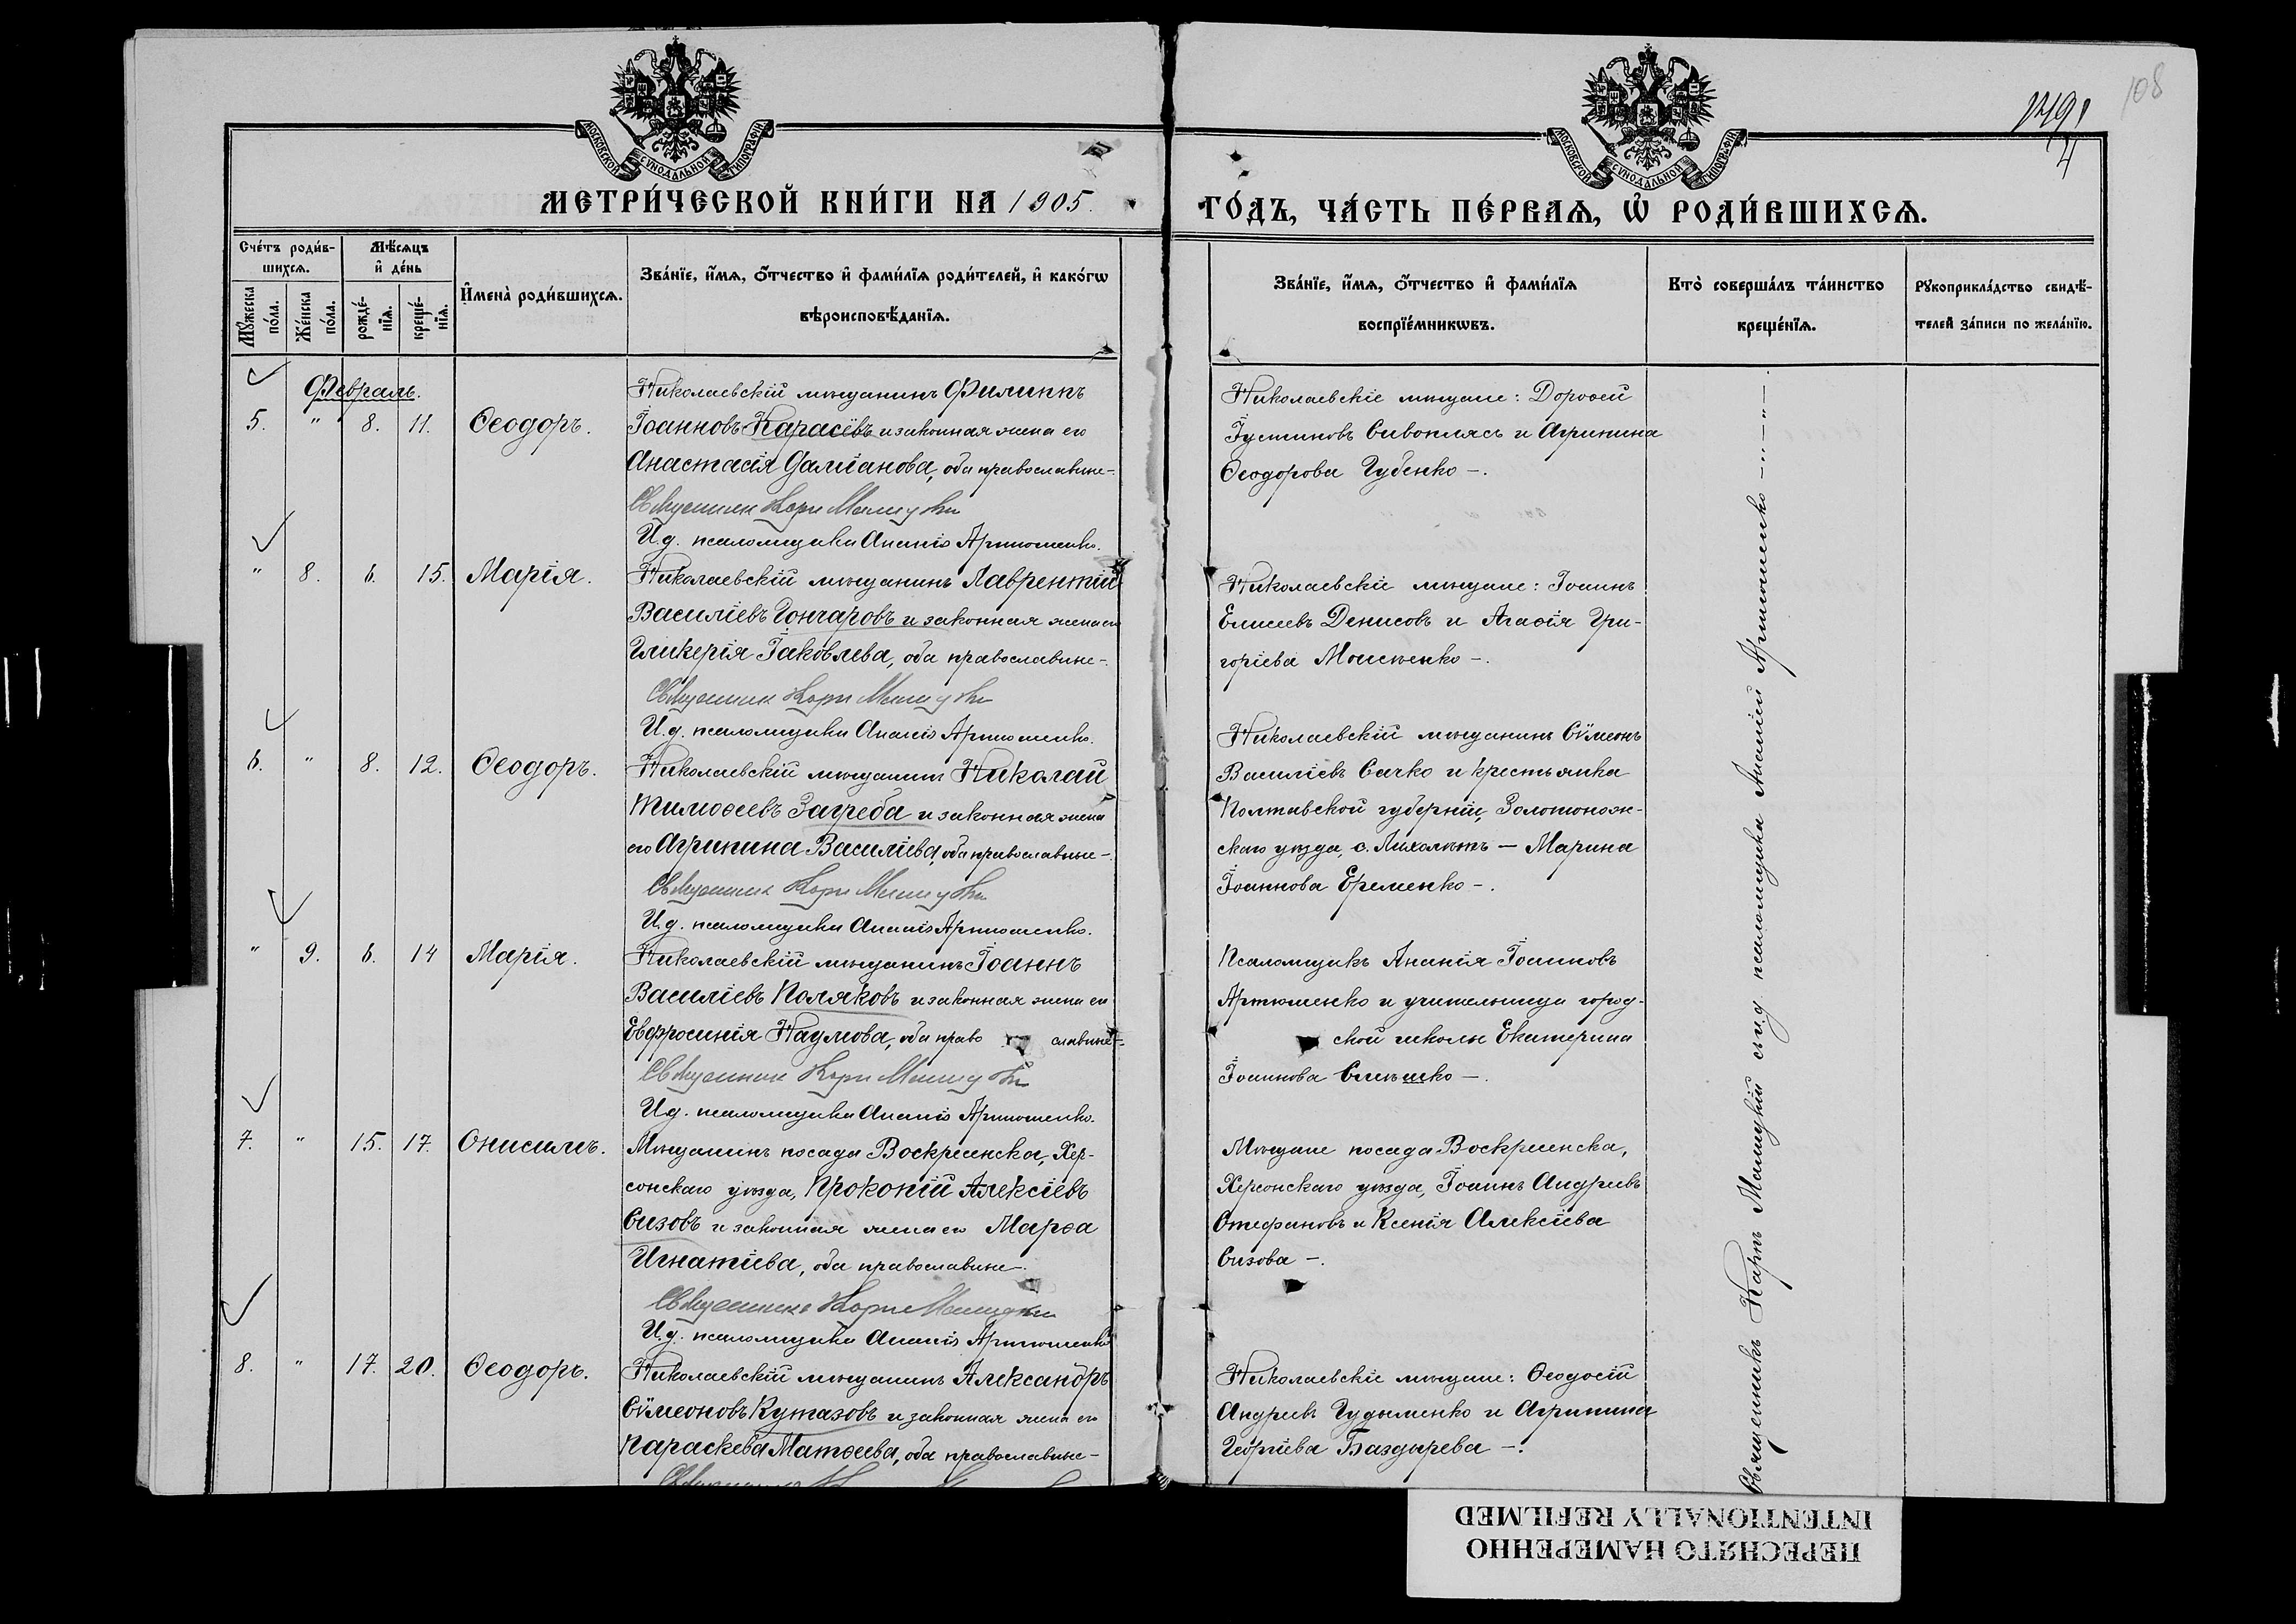 108
МОСКОВСКОЙ СѴНОДАЛЬНОЙ ТИПОГРАФІИ
МОСКОВСКОЙ СѴНОДАЛЬНОЙ ТИПОГРАФІИ
МЕТРИ́ЧЕСКОЙ КНИ́ГИ НА 1905.
ГО́ДЪ, ЧА́СТЬ ПЕ́РВАѦ, Ѡ҆ РОДИ́ВШИХСѦ.
Сче́тъ роди́в-
шихсѧ.
Мꙋ́жеска по́ла.
Же́нска по́ла.
Мѣ́сѧцъ
и҆ де́нь
рожде́-
нїѧ.
креще́-
нїѧ.
И҆мена̀ роди́вшихсѧ.
Зва́нїе, и҆́мѧ, ѻ҆́тчество и҆ фами́лїѧ роди́телей, и҆ како́гѡ
вѣроисповѣ́данїѧ.
Зва́нїе, и҆́мѧ, ѻ҆́тчество и҆ фами́лїѧ
воспрїе́мникѡвъ.
Кто̀ соверша́лъ та́инство
креще́нїѧ.
Рꙋкоприкла́дство свидѣ́-
телей за́писи по жела́нїю.
Февраль.
5. " 8. 11. Ѳеодоръ.
Николаевскій мѣщанинъ Филиппъ
Іоанновъ Карасёвъ и законная жена его
Анастасія Даміанова, оба православные-.
Священник Карп Машуцкий
И.д. псаломщика Ананія Артюшенко.
Николаевскіе мѣщане: Дороѳей
Іустиновъ Сивоплясъ и Агрипина
Ѳеодорова Губенко -.
" 8. 6. 15. Марія.
Николаевскій мѣщанинъ Лаврентій
Василіевъ Гончаровъ и законная жена его
Гликерія Іаковлева, оба православные-.
Священник Карп Машуцкий
И.д. псаломщика Ананія Артюшенко.
Николаевскіе мѣщане: Іоаннъ
Елисеевъ Денисовъ и Агаѳія Гри-
горіева -.
6. " 8. 12. Ѳеодоръ.
Николаевскій мѣщанинъ Николай
Тимоѳеевъ Загреба и законная жена
его Агрипина Василіева, оба православные-.
Священник Карп Машуцкий
И.д. псаломщика Ананія Артюшенко.
Николаевскій мѣщанинъ Сѵмеонъ
Василіевъ Сачко и крестьянка
Полтавской губерніи, Золотонож-
скаго уѣзда, с. Лихолѣтъ - Марина
Іоаннова Еременко -.
" 9. 6. 14 Марія.
Николаевскій мѣщанинъ Іоаннъ
Василіевъ Поляковъ и законная жена его
Евфросинія Наумова, оба право славные-.
Священник Карп Машуцкий
И.д. псаломщика Ананія Артюшенко.
Псаломщикъ Ананія Іоанновъ
Артюшенко и учительница город-
ской школы Екатерина
Іоаннова -.
7. " 15. 17. Онисимъ.
Мѣщанинъ посада Воскресенска, Хер-
сонскаго уѣзда, Прокопій Алексіевъ
Сизовъ и законная жена его Марѳа
Игнатіева, оба православные-.
Священник Карп Машуцкий
И.д. псаломщика Ананія Артюшенко
Мѣщане посада Воскресенска,
Херсонскаго уѣзда, Іоаннъ Андреевъ
Стефановъ и Ксенія Алексіева
Сизова -.
8. " 17. 20. Ѳеодоръ.
Николаевскій мѣщанинъ Александръ
Сѵмеоновъ Кутазовъ и законная жена его
Параскева Матѳеева, оба православные-
Николаевскіе мѣщане: Ѳеодосій
Андреевъ Гудыменко и Агрипина
Георгіева Баздырева -.
Священникъ Карпъ Машуцкій съ и.д. псаломщика Ананіей Артюшенко
ПЕРЕСНЯТО НАМЕРЕННО
INTENTIONALLY REFILMED